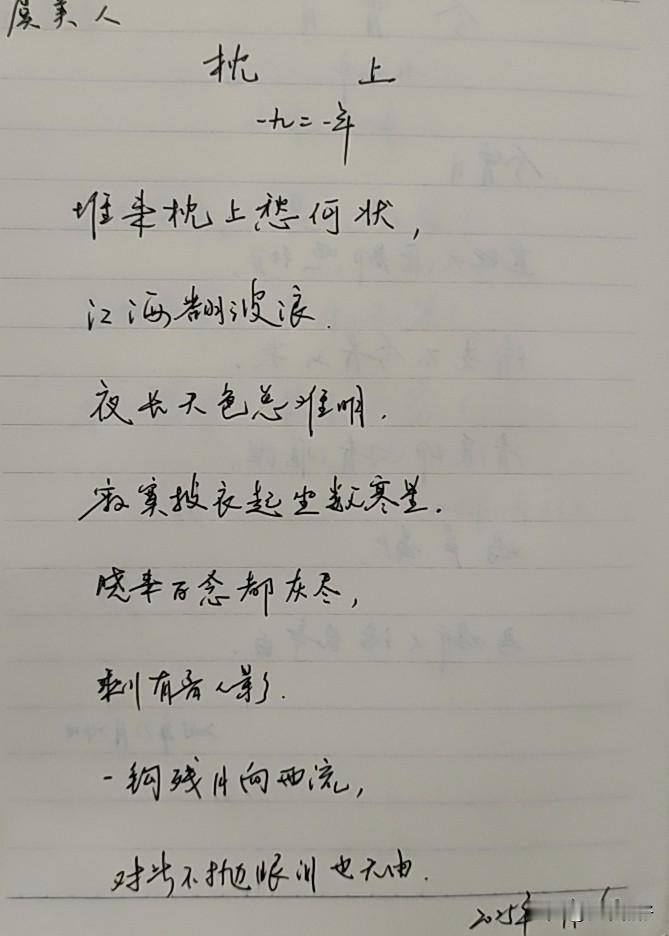 虞美人
枕上
一九二一年
堆来枕上愁何状，
江海翻波浪.
夜长天色总难明.
寂寞披衣起坐数寒星.
晓来百念都灰尽，
剩有离人影.
一钩残月向西流，
对此不抛眼泪也无由.
2025年